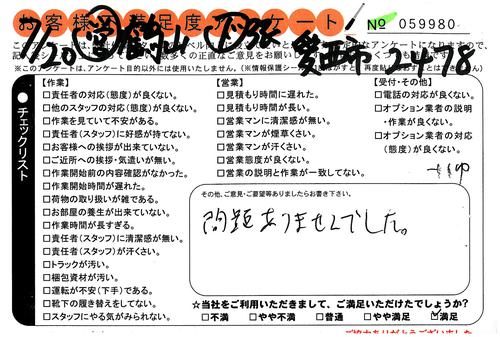 お客様満足度アンケート
№ 059980
7/20
愛西市 24-78
チェックリスト
【作業】
□責任者の対応(態度)が良くない。
□他のスタッフの対応(態度)が良くない。
□作業を見ていて不安がある。
□責任者(スタッフ)に好感が持てない。
□お客様への挨拶が出来ていない。
□ご近所への挨拶・気遣いが無い。
□作業開始前の内容確認がなかった。
□作業開始時間が遅れた。
□荷物の取り扱いが雑である。
□お部屋の養生が出来ていない。
□作業時間が長すぎる。
□責任者(スタッフ)に清潔感が無い。
□責任者(スタッフ)が汗くさい。
□トラックが汚い。
□梱包資材が汚い。
□運転が不安(下手)である。
□靴下の履き替えをしてない。
□スタッフにやる気がみられない。
【営業】
□見積もり時間に遅れた。
□見積もり時間が長い。
□営業マンに清潔感が無い。
□営業マンが煙草くさい。
□営業マンが汗くさい。
□営業態度が良くない。
□営業の説明と作業が一致してない。
【受付・その他】
□電話の対応が良くない。
□オプション業者の説明
・作業が良くない。
□オプション業者の対応
(態度)が良くない。
その他、ご意見・ご要望等ありましたらお書き下さい。
問題ありませんでした。
☆当社をご利用いただきまして、ご満足いただけたでしょうか?
□不満 □やや不満 □普通 □やや満足 ☑満足
ご協力ありがとうございました